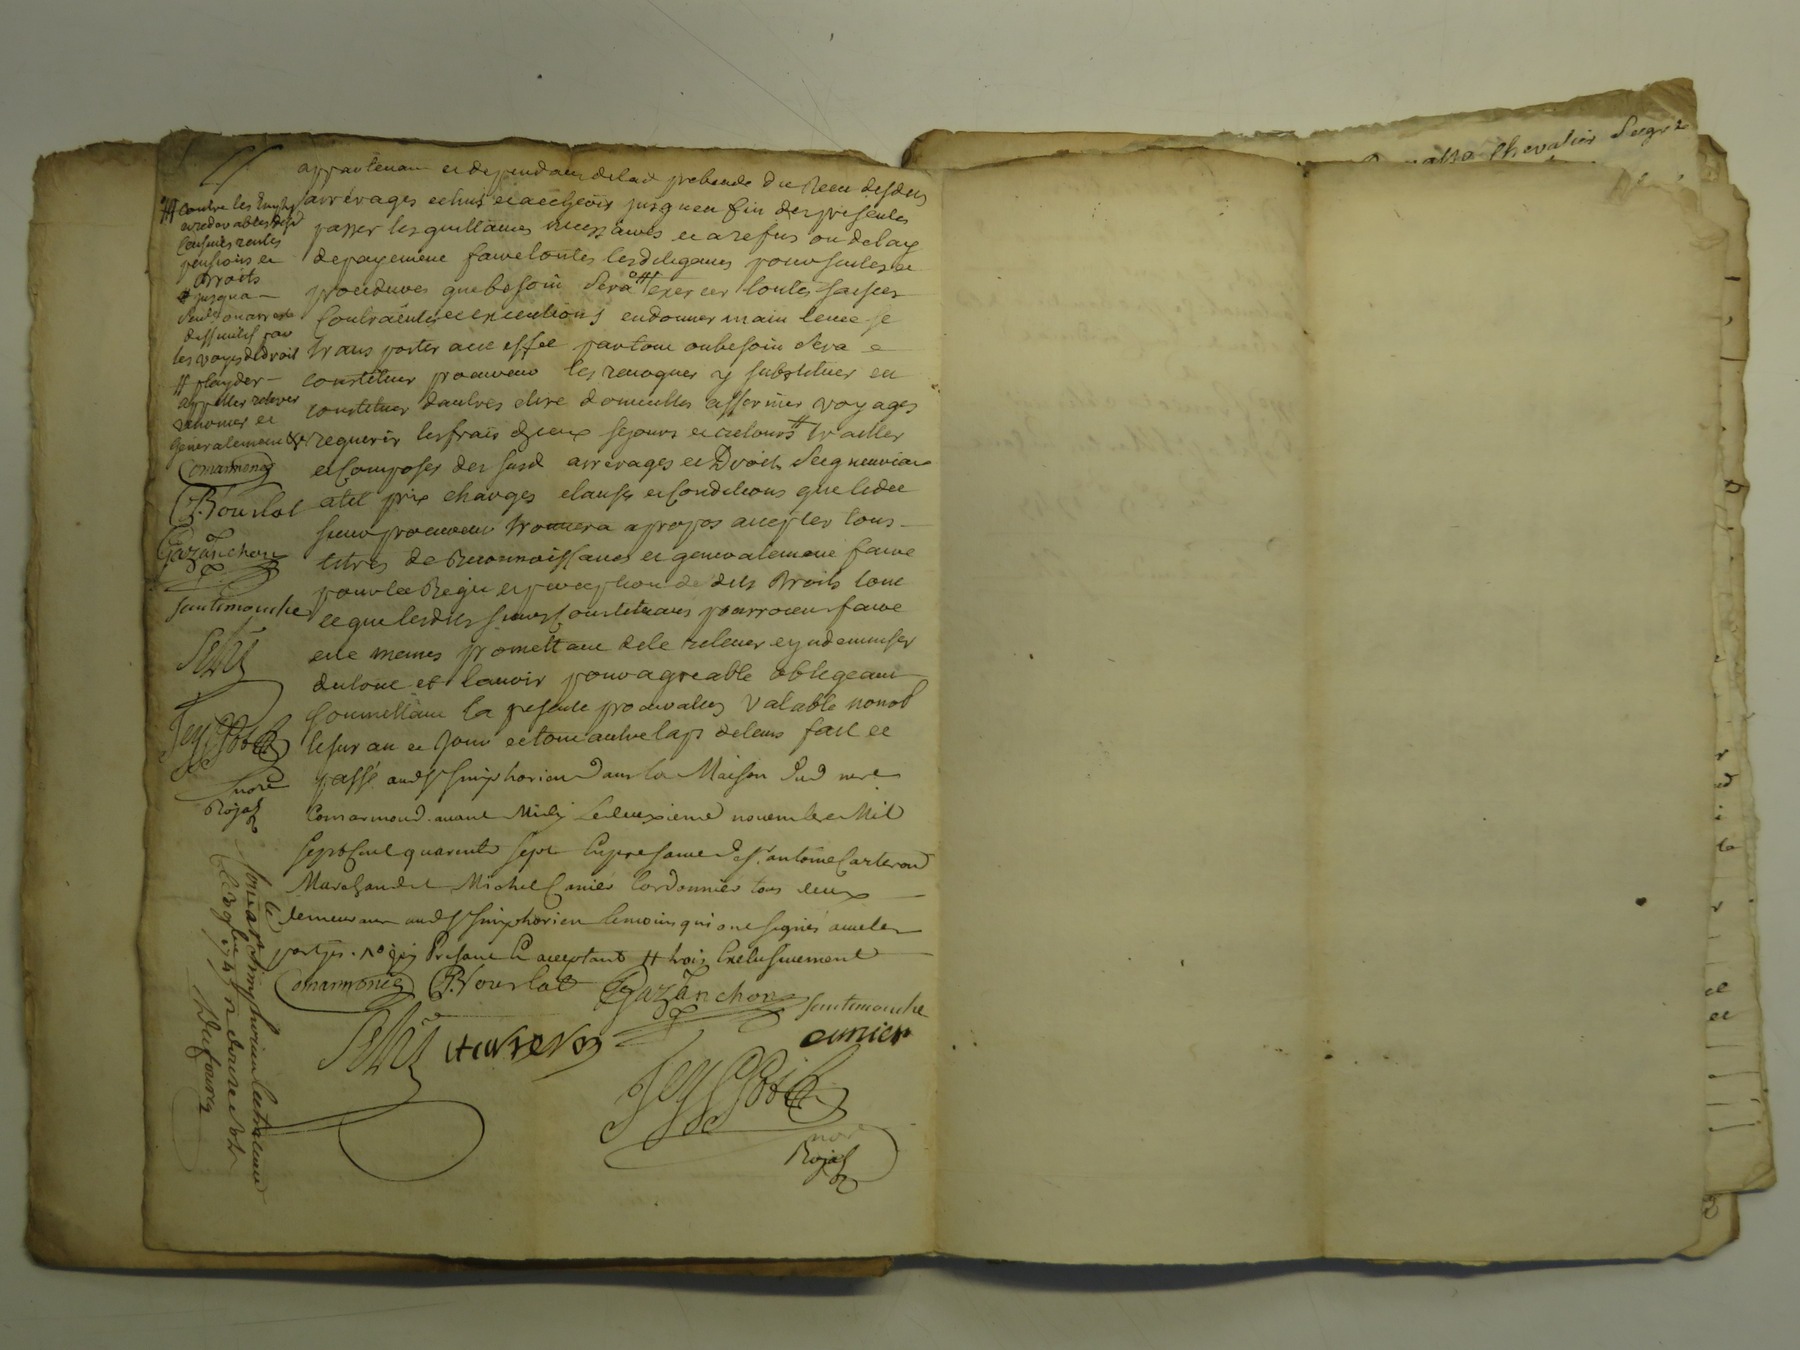 appartenan et dependans de lad prebende Du Recu desdits
arrérages echus et a echeoir jusqu'en fin des presentes
passer les quittances necessaires et a refus ou delay
de payement faire toutes les diligences poursuites et
procedures que besoin sera exercer toutes saisies
Contraintes et executions en donner main levée se
transporter a cet effet partout ou besoin sera et
constituer procureur les revoquer y substituer en
constituer d'autres elire domicilles affermer voyages
requerir les frais d'iceux sejours et retours # traitter
et Composer des susd arrerages et Droits Seigneuriaux
a tel prix charges clauses et Conditions que ledit
sieur procureur trouvera apropos accepter tous
titres de Reconnoissances et generalement faire
pour la Regie et perception desdits Droits tout
ce que lesdits sieurs Constituans pourroient faire
eux memes promettant de le relever et indemniser
du tout et l'avoir pour agreable obligeant
soumettant la presente procuration valable nonob
le sur an et jour et tout autre laps de tems fait et
passé aud St Simphorien Dans la Maison Dud me
Comarmond avant Midy Le deuxieme novembre Mil
sept Cent quarante sept En presence de Sr antoine Carteron
Marchand et Michel Cunier Cordonnier tous deux
demeurant aud St Simphorien temoins qui ont signés avec les
parties. Present Et acceptant # trois Exclusivement
Comarmond B. Vourlat Gazanchon
cunier
Rojas
contre les
redevables desd
Censives rentes
pensions et
Droits
# jusqua
Sentce ou arrest
deffinitif par
les voyes de droit
# playder
appeller relever
renoncer et
generalement
Comarmond
B. Vourlat
Gazanchon
Rojas
Conté a St Simphorien
Dufourn
Chevalier Seigr